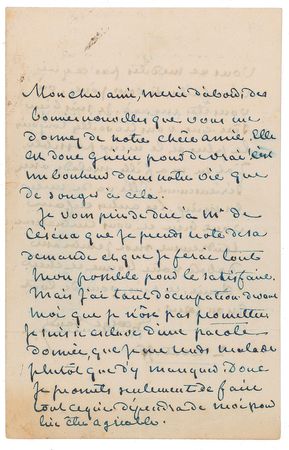 Mon cher ami, merci d'abord des
bonnes nouvelles que vous me
donnez de notre chère amie. Elle
est donc guérie pour de vrai! C'est
un bonheur dans notre vie que
de songer à cela.
Je vous prie de dire à Mr de
Cesena que je prends note de sa
demande et que je ferai tout
mon possible pour le satisfaire.
Mais j'ai tant d'occupation devant
moi que je n'ose pas promettre.
Je suis si esclave d'une parole
donnée, que je me rends malade
plutôt que d'y manquer. Donc
je promets seulement de faire
tout ce qui dépendra de moi pour
lui être agréable.